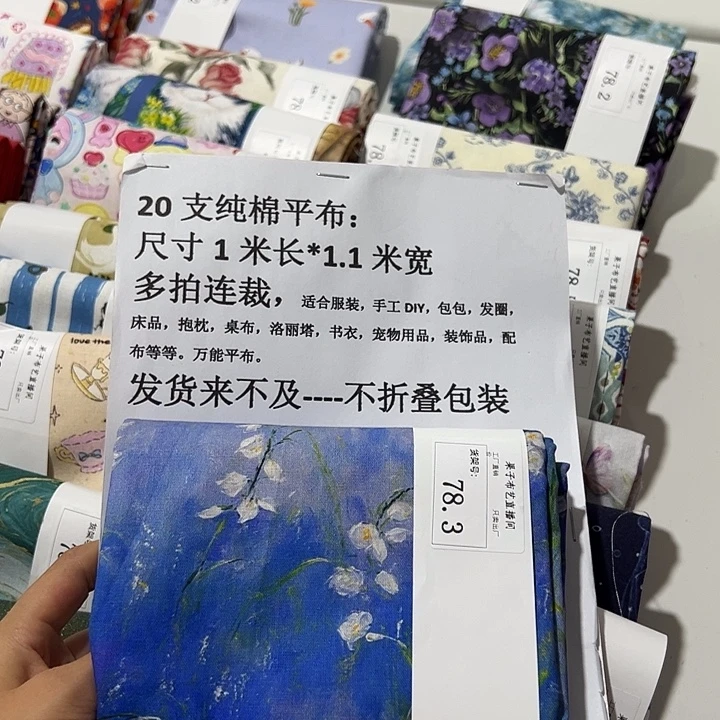 78.2
20 支纯棉平布：
尺寸 1 米长*1.1 米宽
多拍连裁，适合服装，手工 DIY，包包，发圈，
床品，抱枕，桌布，洛丽塔，书衣，宠物用品，装饰品，配
布等等。万能平布。
发货来不及----不折叠包装
果子布艺直播间
工厂直销 只卖出厂
货架号：
78.3
果子布艺直播间
货架号：
love the